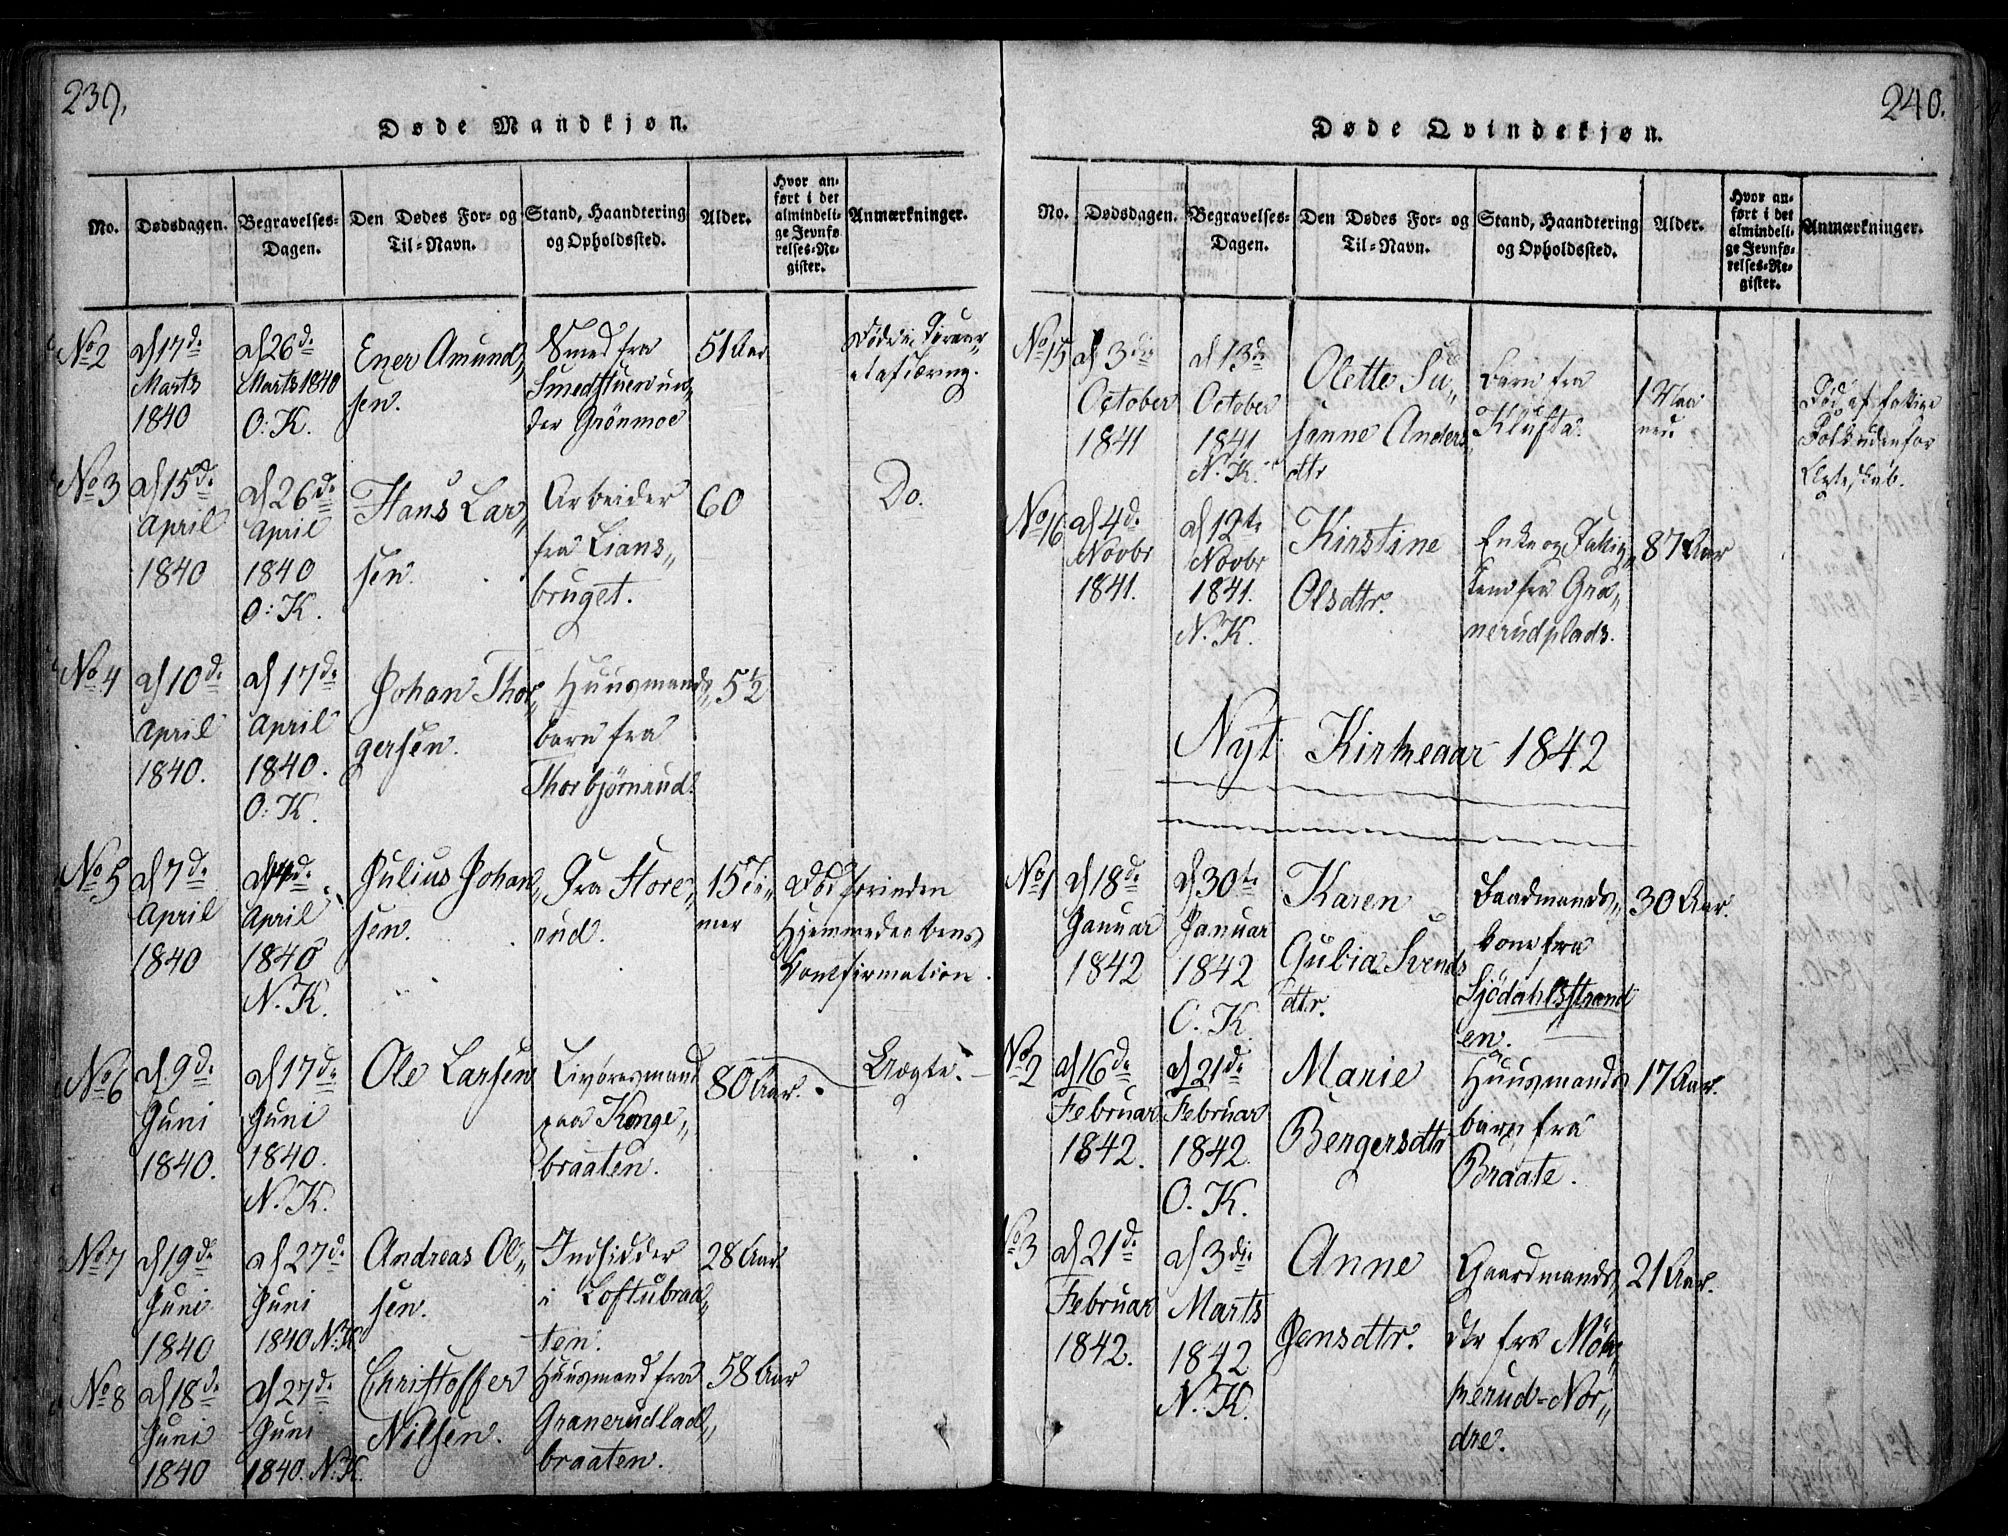 239.
Døde Mandkjøn.
No.
Dødsdagen.
Begravelses-
Dagen.
Den Dødes For- og
Til-Navn.
Stand, Haandtering
og Opholdssted.
Alder.
Hvor an-
ført i det
almindeli-
ge Jevnfø-
relses-Re-
gister.
Anmærkninger.
No 2
d 17de
Marts
1840
d 26de
Marts 1840
O: K.
Ener Amund„
sen.
Smed fra
Smedstuen un„
der Grönmoe
51 Aar
No 3
d 15de
April
1840
d 26de
April
1840
O: K.
Hans Lar„
sen.
Arbeider
fra Lians„
bruget.
60
Do.
No 4
d 10de
April
1840.
d 17de
April
1840.
O: K.
Johan Thor„
gersen.
Huusmands„
barn fra
Thorbjörnrud.
5 1/2
No 5
d 7de
April
1840
April
1840
N. K.
Julius Johan„
sen.
Fra Hore„
rud.
15 Ti„
mer
Død forinden
Hjemmedaabens
Confirmation.
No 6
d 9de
Juni
1840.
d 17de
Juni
1840.
N. K.
Ole Larsen
Livöresmand
paa Konge„
braaten.
80 Aar.
Ægte.
No 7
d 19de
Juni
1840
d 27de
Juni
1840 N. K.
Andreas Ol„
sen.
Indsidder
i Loftubraa„
ten.
28 Aar
No 8
d 18de
Juni
1840
d 27de
Juni
1840. N. K.
Christoffer
Nilsen.
Huusmand fra
Granerudlad„
braaten.
58 Aar
240.
Døde Qvindekjøn.
No.
Dødsdagen.
Begravelses-
Dagen.
Den Dødes For- og
Til-Navn.
Stand, Haandtering
og Opholdssted.
Alder.
Hvor an-
ført i det
almindeli-
ge Jevnfø-
relses-Re-
gister.
Anmærkninger.
No 15
d 3die
October
1841
d 13de
October
1841
N. K.
Olette Su„
sanne Anders„
dtr
Barn fra
Klufta.
1 Maa
ned
Død af fattige
Folk udenfor
Ægteskab.
No 16
d 4de
Novbr
1841.
d 12te
Novbr
1841.
N. K.
Kirstine
Olsdtr.
Enke og Fattig„
lem fra Gra„
nerudplads.
87 Aar
Nyt Kirkeaar 1842
No 1
d 18de
Januar
1842
d 30te
Januar
1842
O. K.
Karen
Gubia Svends
dtr.
Baadmands„
kone fra
Sjödahlsstrand
en.
30 Aar.
No 2
d 16de
Februar
1842.
d 21de
Februar
1842
O. K.
Marie
Bengersdtr
Huusmands
barn fra
Braate.
17 Aar.
No 3
d 21de
Februar
1842.
d 3die
Marts
1842
N. K.
Anne
Jensdtr.
Gaardmands„
dtr fra Mön„
nerud-Nor„
dre.
21 Aar.